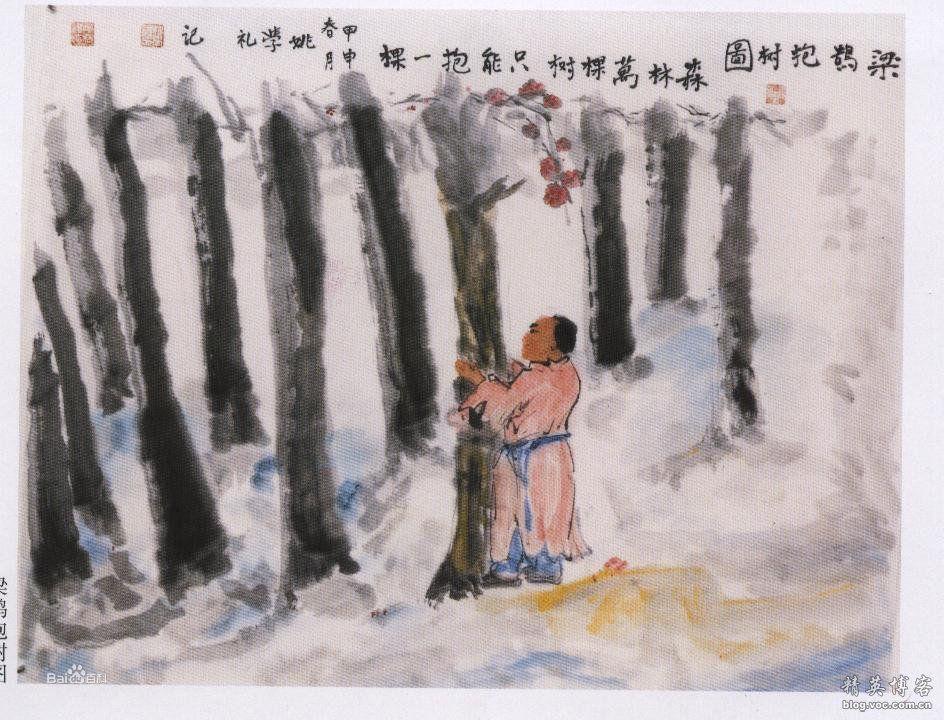 梁鹄抱树圖
森林萬棵树只能抱一棵
甲申
春月
姚學礼 记
梁鹄抱树图
Bai百科
精英博客
blog.voc.com.cn